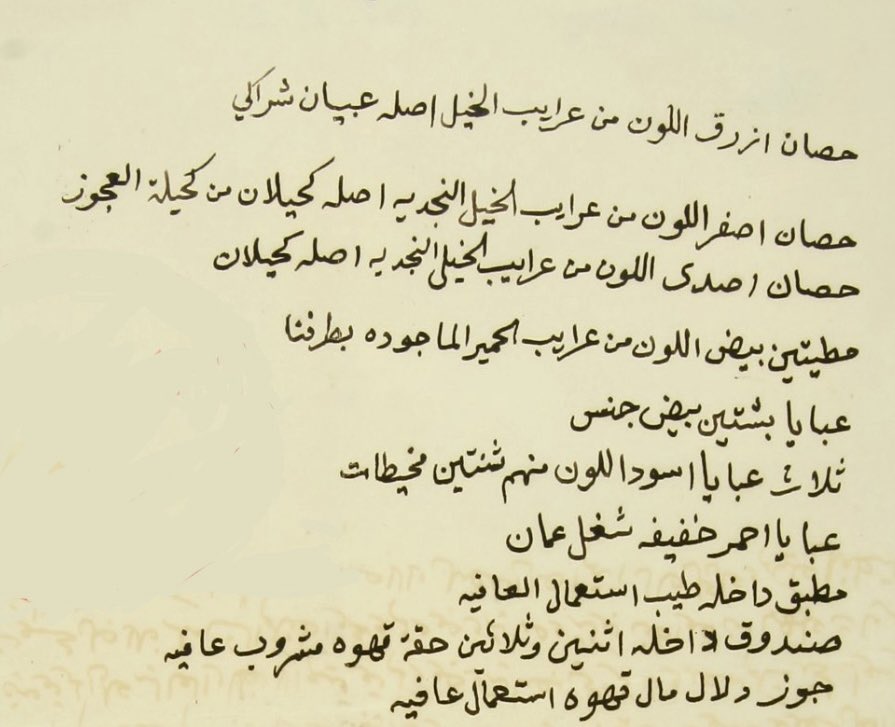 حصان ازرق اللون من عرايب الخيل اصله عبيان شراكي
حصان اصفر اللون من عرايب الخيل النجديه اصله كحيلان من كحيلة العجوز
حصان اصدى اللون من عرايب الخيل النجديه اصله كحيلان
مطيتين بيض اللون من عرايب الحمير الماجوده بطرفنا
عبايا بشتين بيض جنس
ثلاث عبايا اسود اللون منهم ثنتين مخيطات
عبايا احمر خفيفه شغل عمان
مطبق داخله طيب استعمال العافيه
صندوق داخله اثنين وثلاثين حقة قهوه مشروب عافيه
جوز دلال مال قهوه استعمال عافيه